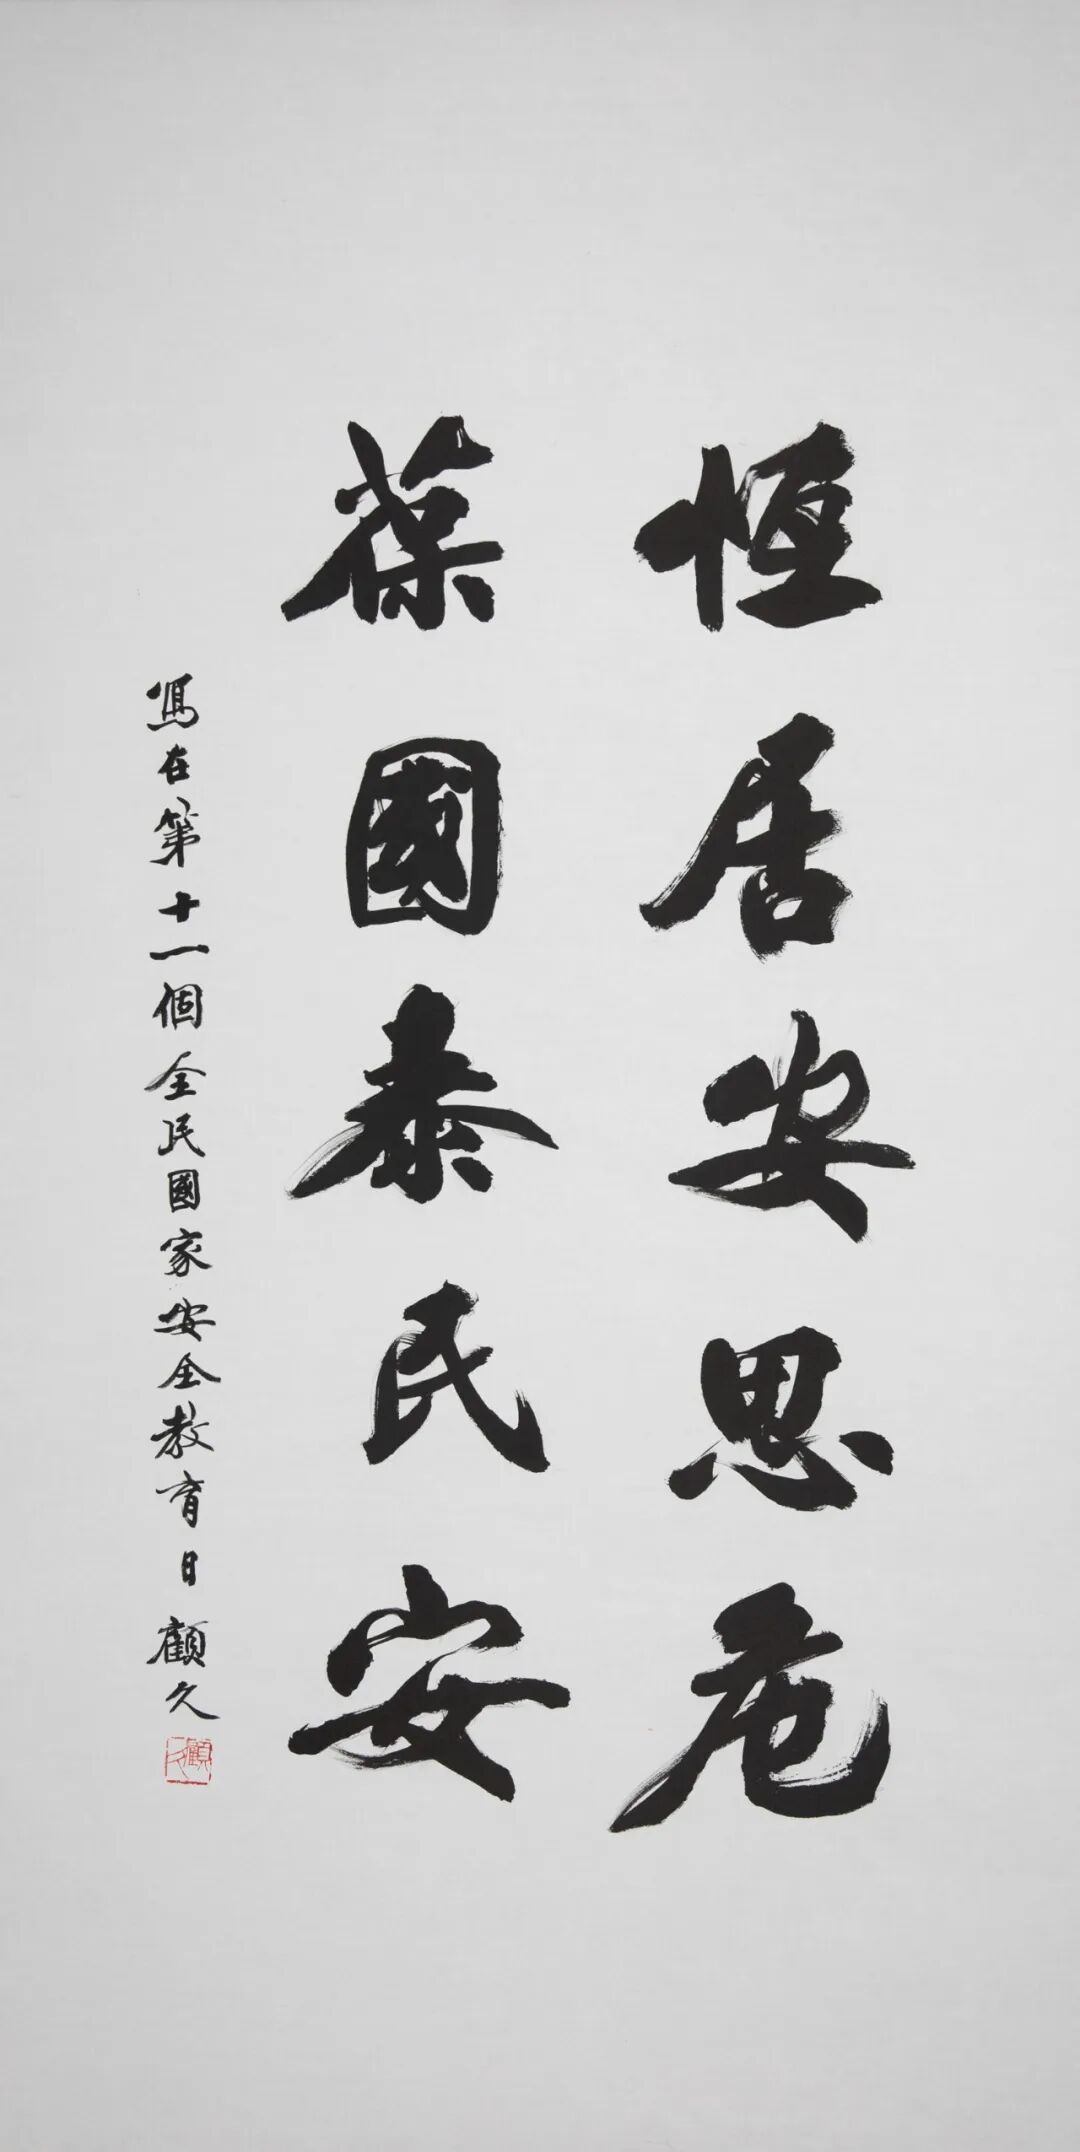 恒居安思危
葆國泰民安
寫在第十一個全民國家安全教育日 顧久
顧久